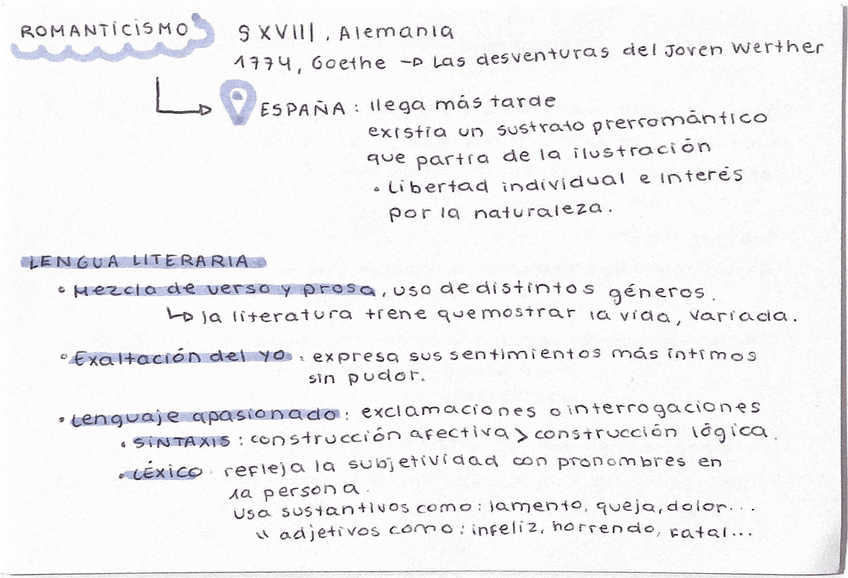 ROMANTICISMO S XVIII, Alemania
1774, Goethe → Las desventuras del Joven Werther
ESPAÑA: llega más tarde
existía un sustrato prerromántico
que partía de la ilustración
• Libertad individual e interés
por la naturaleza.
LENGUA LITERARIA
• Mezcla de verso y prosa, uso de distintos géneros.
↳ la literatura tiene que mostrar la vida, variada.
• Exaltación del yo: expresa sus sentimientos más íntimos
sin pudor.
• Lenguaje apasionado: exclamaciones o interrogaciones
• SINTAXIS: construcción afectiva > construcción lógica.
• LÉXICO: refleja la subjetividad con pronombres en
1a persona.
Usa sustantivos como: lamento, queja, dolor...
" adjetivos como: infeliz, horrendo, fatal...